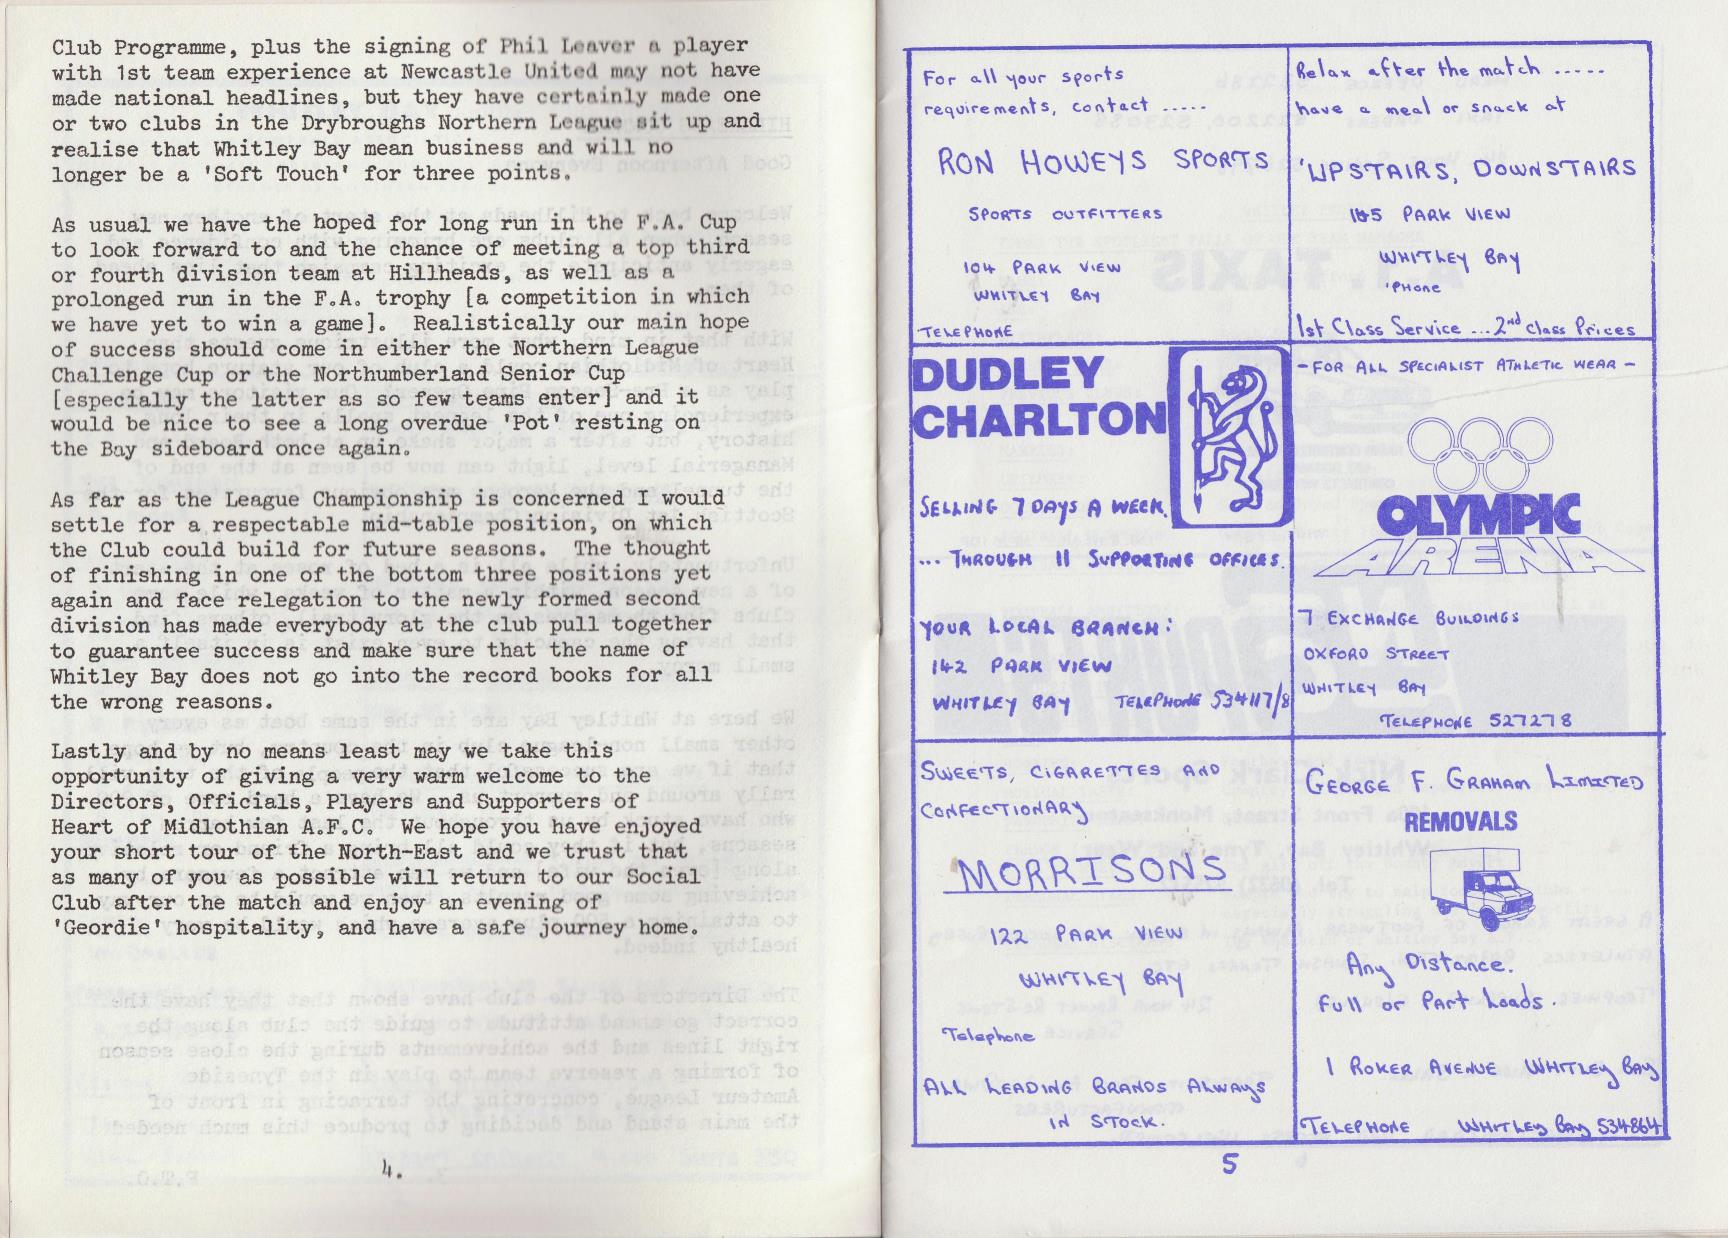 Club Programme, plus the signing of Phil Leaver a player
with 1st team experience at Newcastle United may not have
made national headlines, but they have certainly made one
or two clubs in the Drybroughs Northern League sit up and
realise that Whitley Bay mean business and will no
longer be a 'Soft Touch' for three points.
As usual we have the hoped for long run in the F.A. Cup
to look forward to and the chance of meeting a top third
or fourth division team at Hillheads, as well as a
prolonged run in the F.A. trophy [a competition in which
we have yet to win a game]. Realistically our main hope
of success should come in either the Northern League
Challenge Cup or the Northumberland Senior Cup
[especially the latter as so few teams enter] and it
would be nice to see a long overdue 'Pot' resting on
the Bay sideboard once again.
As far as the League Championship is concerned I would
settle for a respectable mid-table position, on which
the Club could build for future seasons. The thought
of finishing in one of the bottom three positions yet
again and face relegation to the newly formed second
division has made everybody at the club pull together
to guarantee success and make sure that the name of
Whitley Bay does not go into the record books for all
the wrong reasons.
Lastly and by no means least may we take this
opportunity of giving a very warm welcome to the
Directors, Officials, Players and Supporters of
Heart of Midlothian A.F.C. We hope you have enjoyed
your short tour of the North-East and we trust that
as many of you as possible will return to our Social
Club after the match and enjoy an evening of
'Geordie' hospitality, and have a safe journey home.
4.
For all your sports
requirements, contact .....
RON HOWEYS SPORTS
SPORTS OUTFITTERS
104 PARK VIEW
WHITLEY BAY
TELEPHONE
Relax after the match .....
have a meal or snack at
'UPSTAIRS, DOWNSTAIRS
PARK VIEW
WHITLEY BAY
'PHONE
1st Class Service ... 2nd Class Prices
DUDLEY
CHARLTON
SELLING 7 DAYS A WEEK.
... THROUGH 11 SUPPORTING OFFICES.
YOUR LOCAL BRANCH:
142 PARK VIEW
WHITLEY BAY TELEPHONE 534117/8
- FOR ALL SPECIALIST ATHLETIC WEAR -
OLYMPIC
ARENA
7 EXCHANGE BUILDINGS
OXFORD STREET
WHITLEY BAY
TELEPHONE 527278
SWEETS, CIGARETTES AND
CONFECTIONARY
MORRISONS
122 PARK VIEW
WHITLEY BAY
Telephone
ALL LEADING BRANDS ALWAYS
IN STOCK.
GEORGE F. GRAHAM LIMITED
REMOVALS
Any Distance.
Full or Part Loads.
1 ROKER AVENUE WHITLEY BAY
TELEPHONE WHITLEY BAY 534864
5